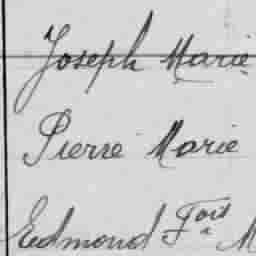 Joseph Marie
Pierre Marie
Edmond Fois M